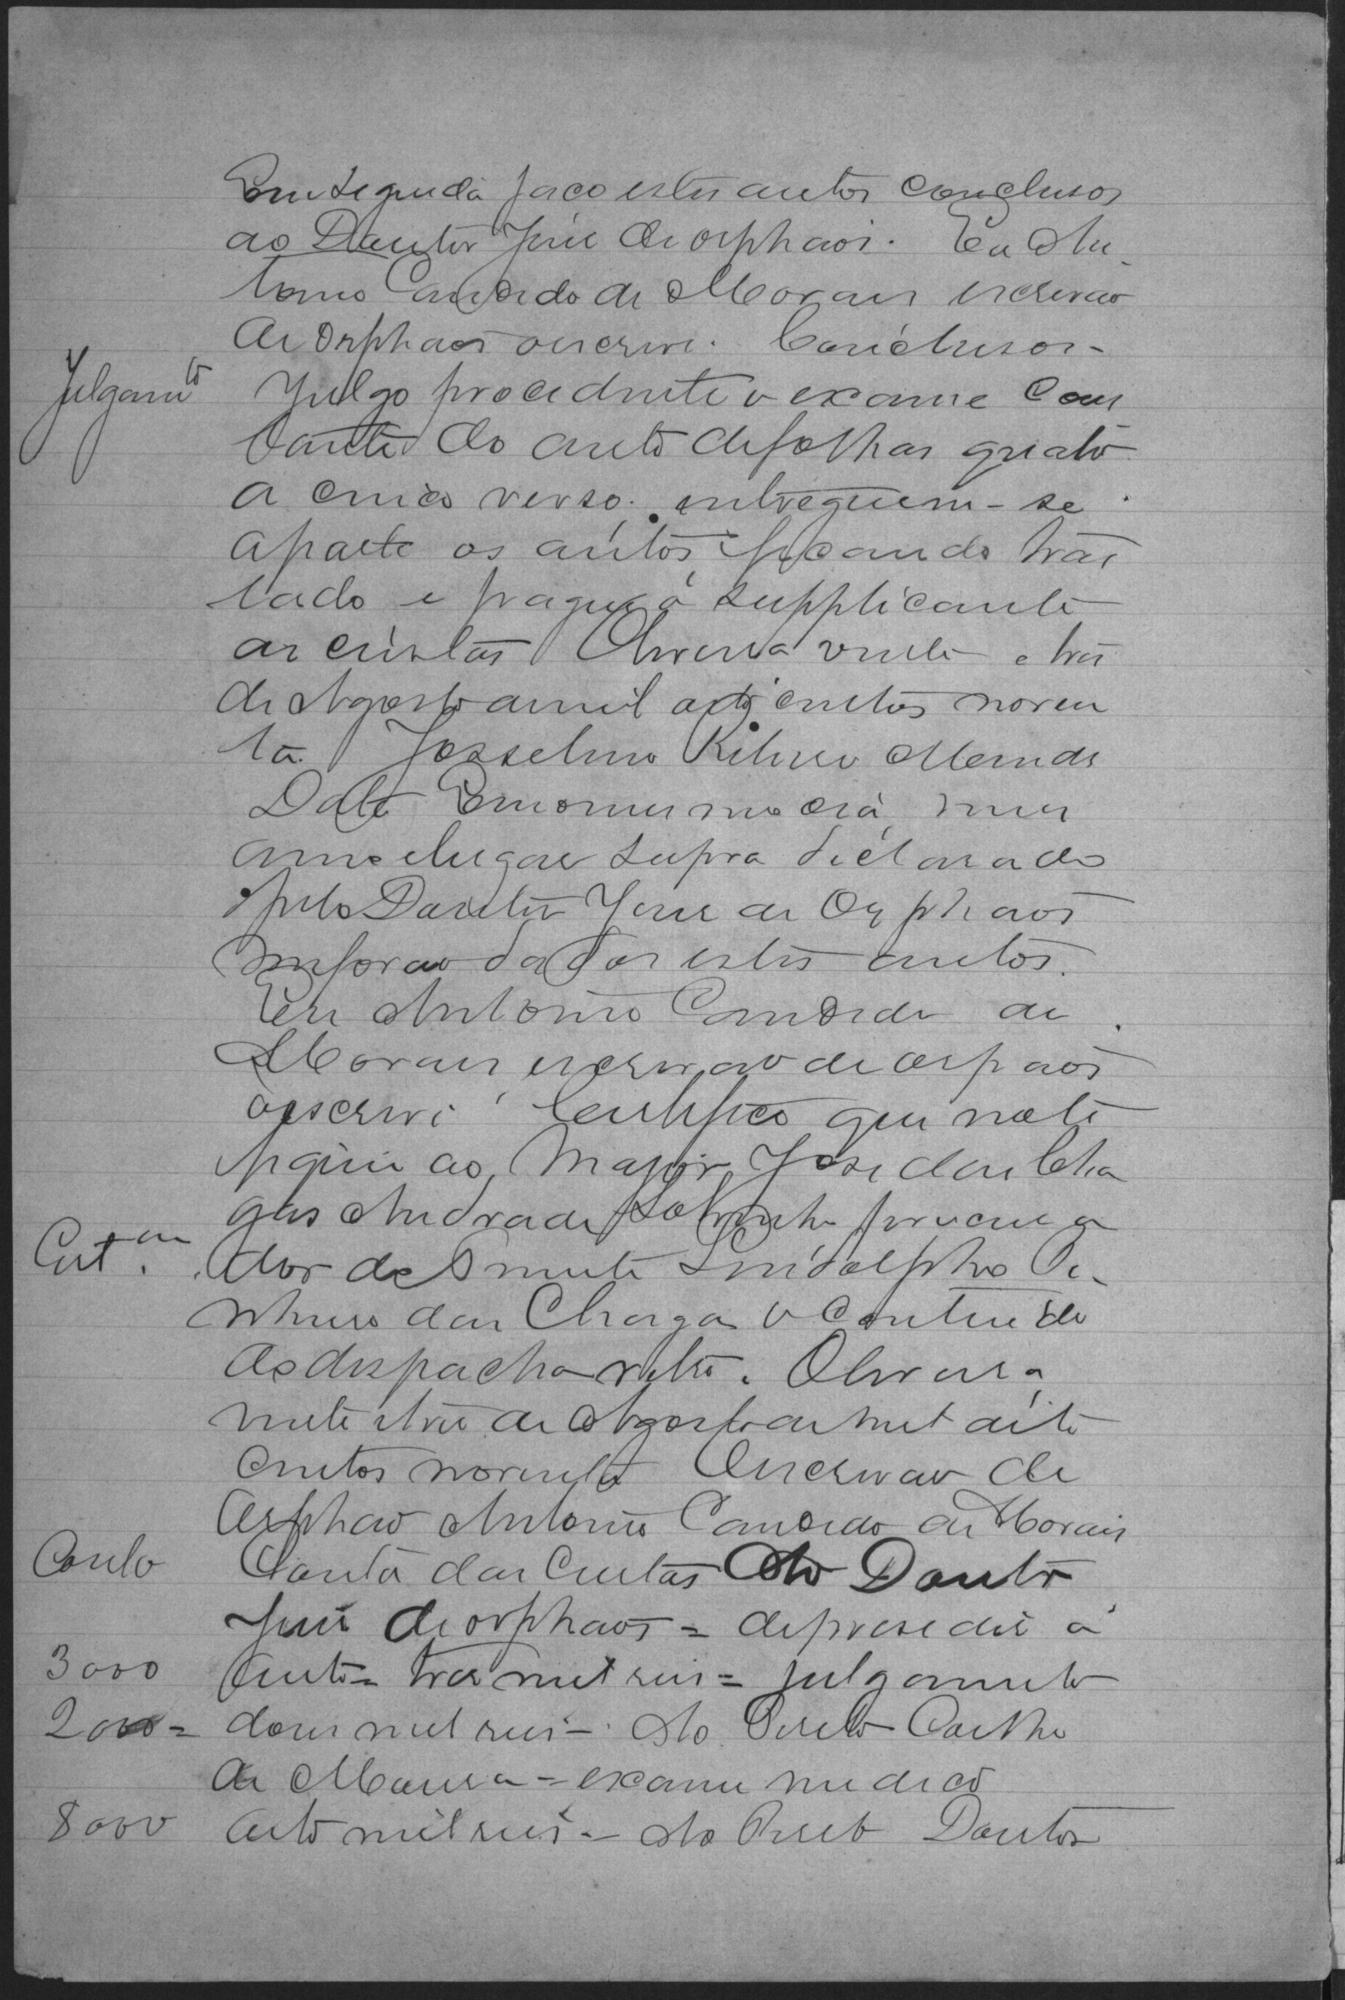 Em seguida faço estes autos conclusos
ao Doutor Juis de orphaos. Eu An-
tonio Candido de Morais escrivão
de orphaos o escrevi. Conclusos-
Julgam.to Julgo procedente o exame cons
tante do auto de folhas quatro
a cinco verso. entreguem-se
a parte os autos ficando tras
lado e pague o supplicante
as custas Oliveira vinte e tres
de Agosto de mil oitocentos noven
ta. Josselino Ribeiro Mendes
Data Em o mesmo dia, mes
anno e lugar supra declarado
pelo Doutor Juis de Orphaos
me forão dados estes autos.
Eu Antonio Candido de
Morais escrivao de orphaos
o escrevi. Certifico que noti
fiquei ao Major José das Cha
gas Andrade Sobrinho procura
Cert.am dor de Lindolpho Ri
beiro das Chagas o conteudo
do despacho retro. Oliveira
vinte e tres de Agosto de mil oito
centos noventa O escrivao de
Orphao Antonio Candido de Morais
Conta Conta das Custas Ao Doutor
Juis de orphaos = de presedir o
3000 auto = tres mil reis = julgamento
2000 = dous mil reis - Ao Perito Coelho
de Moura = exame medico
8000 oito mil reis - Ao Perito Doutor